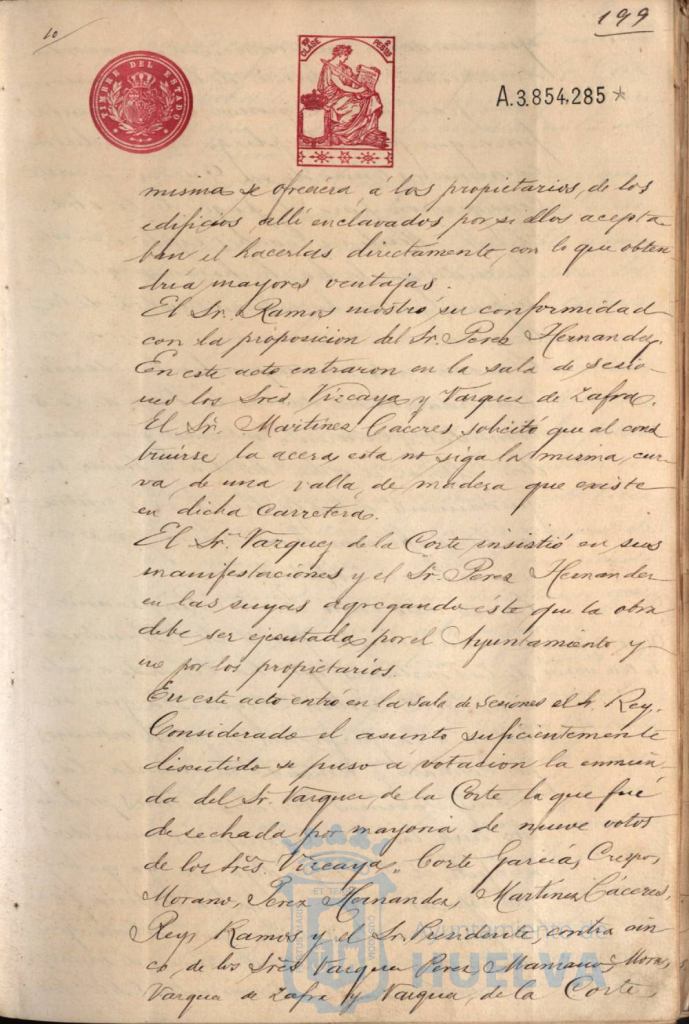 10
199
TIMBRE DEL ESTADO
CLASE 10ª
PESETAS 2
A.3.854.285*
misma se ofreciera á los propietarios, de los
edificios allí enclavados por si ellos acepta-
ban el hacerlas directamente, con lo que obten-
dría mayores ventajas.
El Sr. Ramos mostró su conformidad
con la proposicion del Sr. Perez Hernandez.
En este acto entraron en la sala de sesio-
nes los Sres. Vizcaya y Vazquez de Zafra.
El Sr. Martinez Cáceres solicitó que al cons
truirse la acera esta no siga la misma cur-
va de una valla de madera que existe
en dicha Carretera.
El Sr. Vazquez de la Corte insistió en sus
manifestaciones y el Sr. Perez Hernandez
en las suyas agregando éste que la obra
debe ser ejecutada por el Ayuntamiento y
no por los propietarios.
En este acto entró en la sala de sesiones el Sr. Rey.
Considerado el asunto suficientemente
discutido se puso á votacion la enmien-
da del Sr. Vazquez de la Corte la que fué
desechada por mayoria de nueve votos
de los Sres. Vizcaya, Corte Garcia, Crespo,
Morano, Perez Hernandez, Martinez Cáceres,
Rey, Ramos y el Sr. Presidente, contra cin-
co de los Sres Vazquez Perez, Mora,
Vazquez de Zafra y Vazquez de la Corte,
Ayuntamiento de
HUELVA